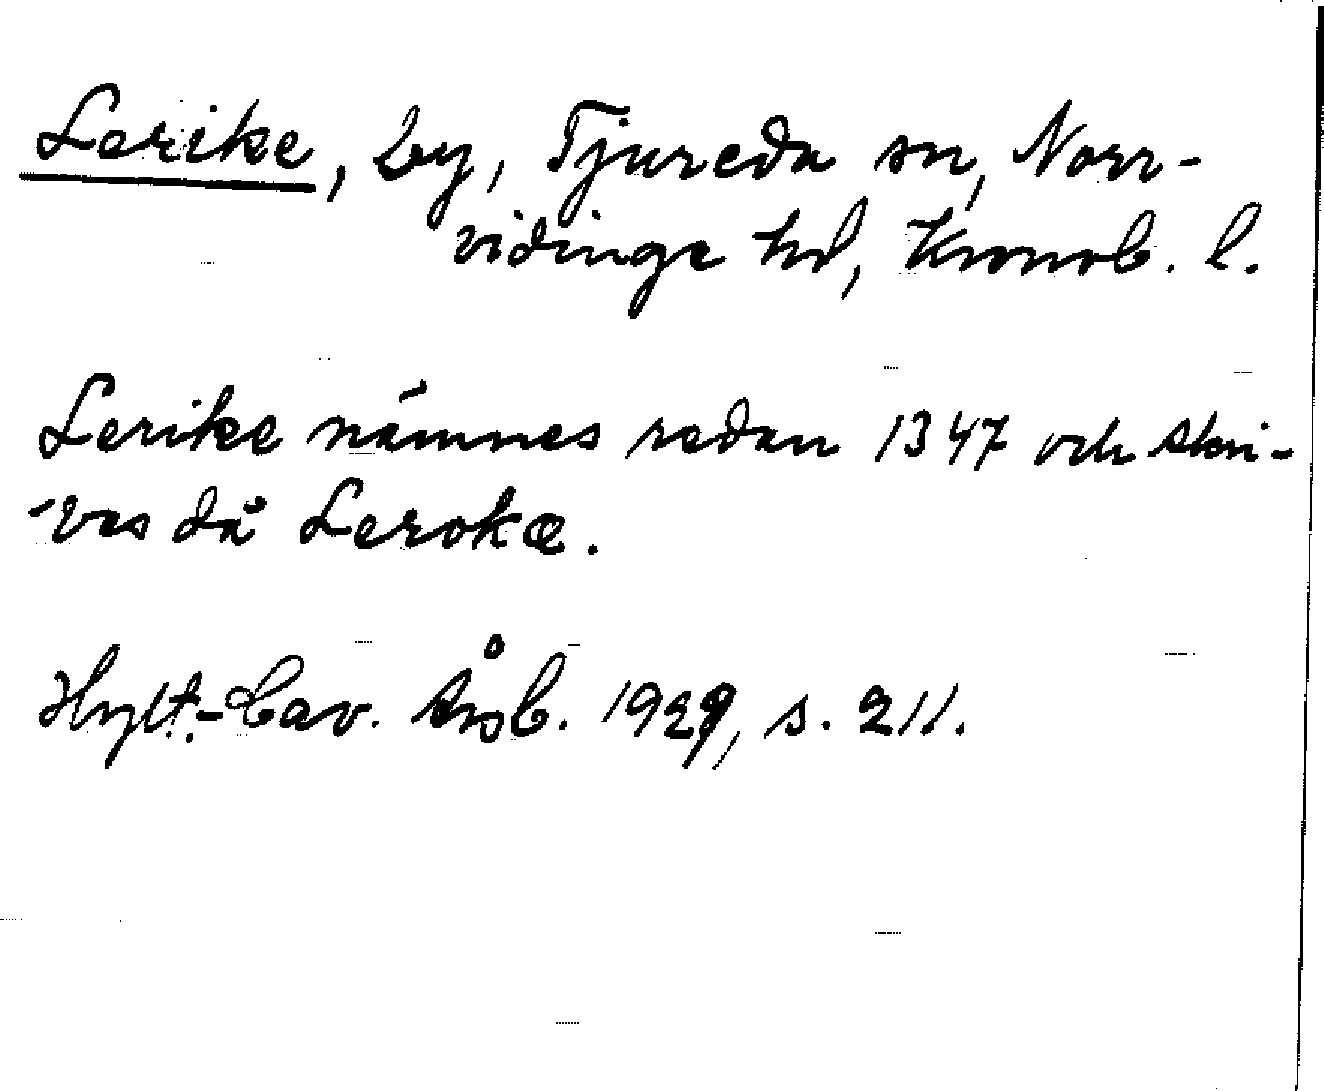 Lerike, by, Tjureda sn, Norr-
vidinge hd, Kronob. l.
Lerike nämnes redan 1347 och skri-
ves då Lerokæ.
Hylt.-Cav. årsb. 1929, s. 211.